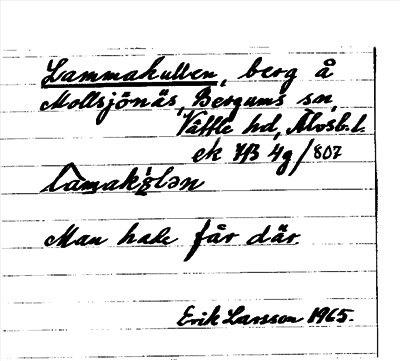 Lammakullen, berg å
Mollsjönäs, Bergums sn,
Vättle hd, Älvsb.l.
ek 7B 4g/807
Man hade får där
Erik Larsson 1965.